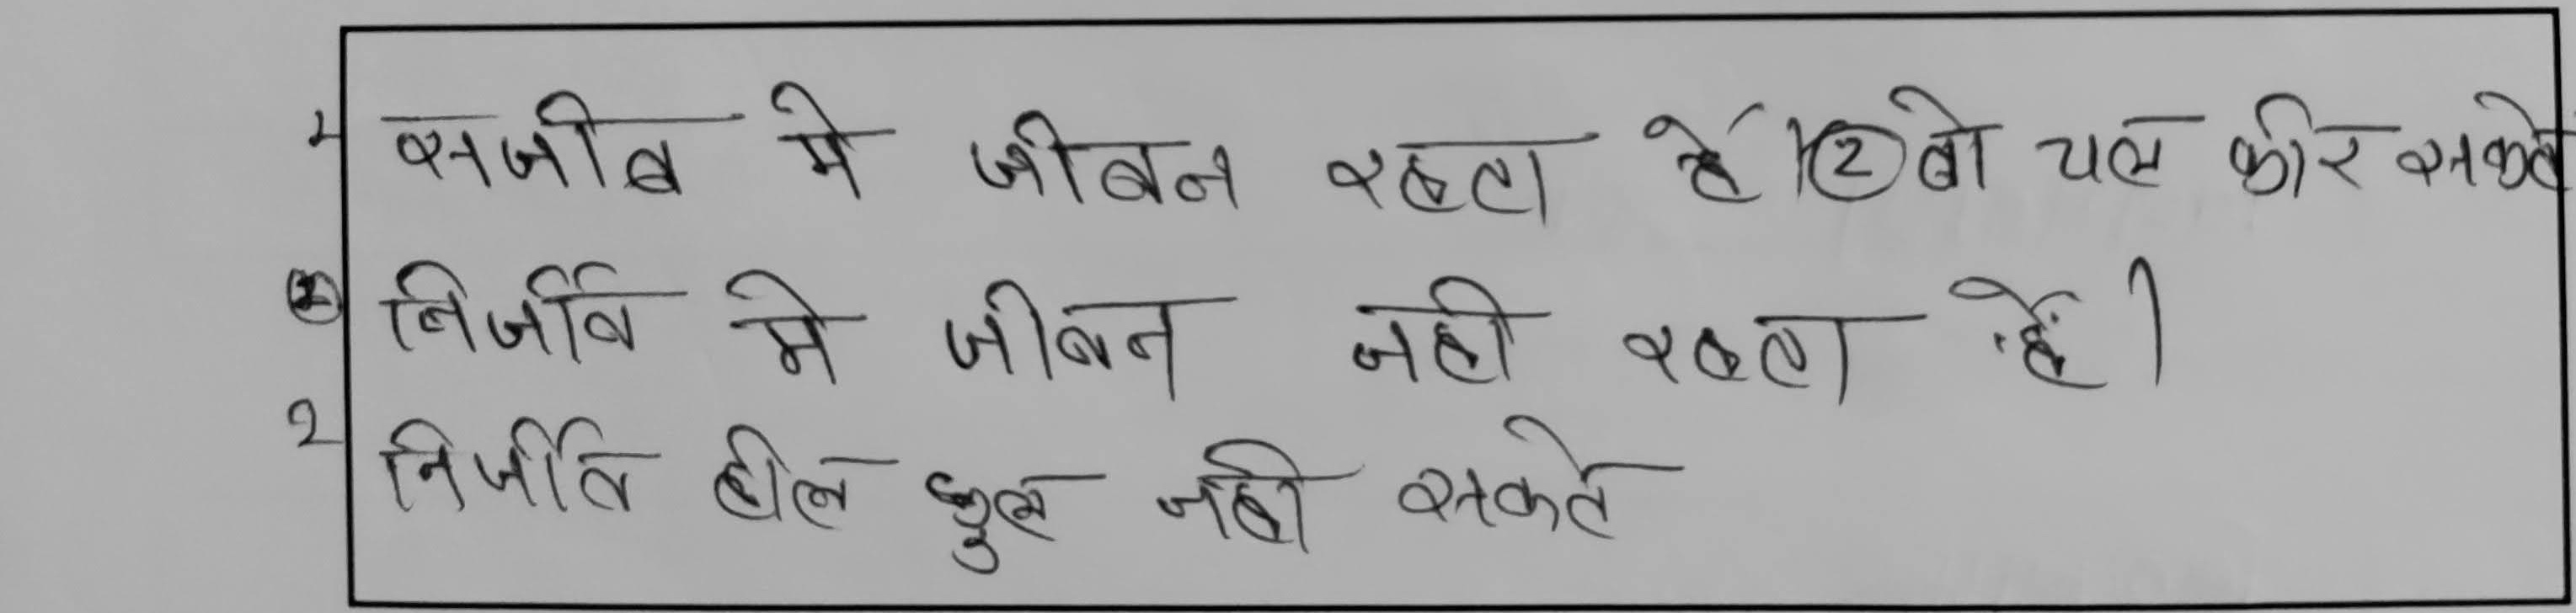 1 सजीब मे जीबन रहता हें। ② बो चल फीर सकते
② निर्जीव मे जीबन नही रहता हैं।
2 निर्जीव हील डुल नही सकते